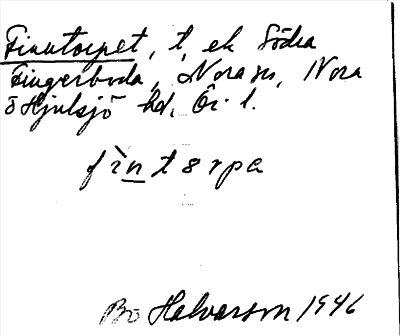 Finntorpet, t, ek Södra
Fingerboda, Nora sn, Nora
o Hjulsjö hd, Ör. l.
fìntorpa
Bo Halvarson 1946